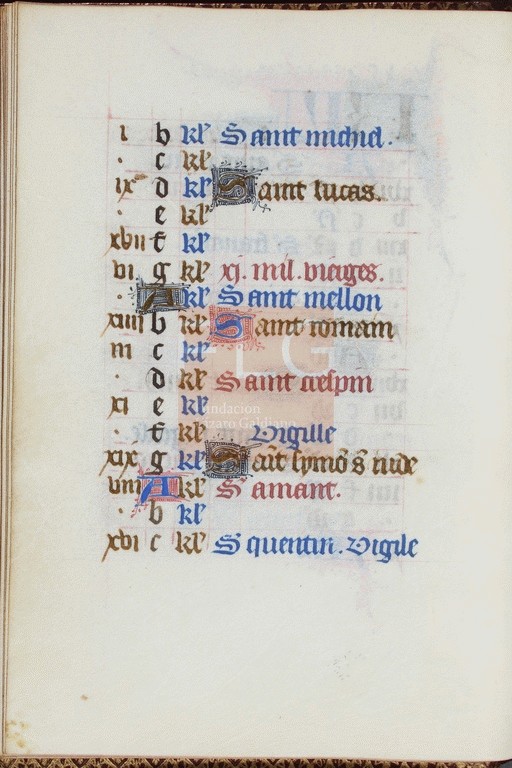 i b kl' Saint michiel.
. c kl'
ix d kl' Saint lucas.
. e kl'
xvii f kl'
vi g kl' xj. mil. vierges.
. A kl' Saint mellon
xiiii b kl' Saint romain
iii c kl'
. d kl' Saint crespin
xi e kl'
. f kl' Vigille
xix g kl' Sait symo s iude
viii A kl' S amant.
. b kl'
xvi c kl' S quentin. Vigile
FLG
Fundacion
Lázaro Galdiano